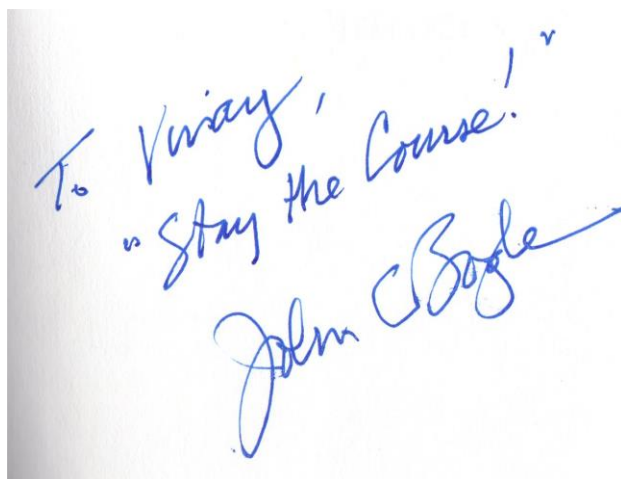 To Vinay,
"Stay the Course!"
John C Bogle